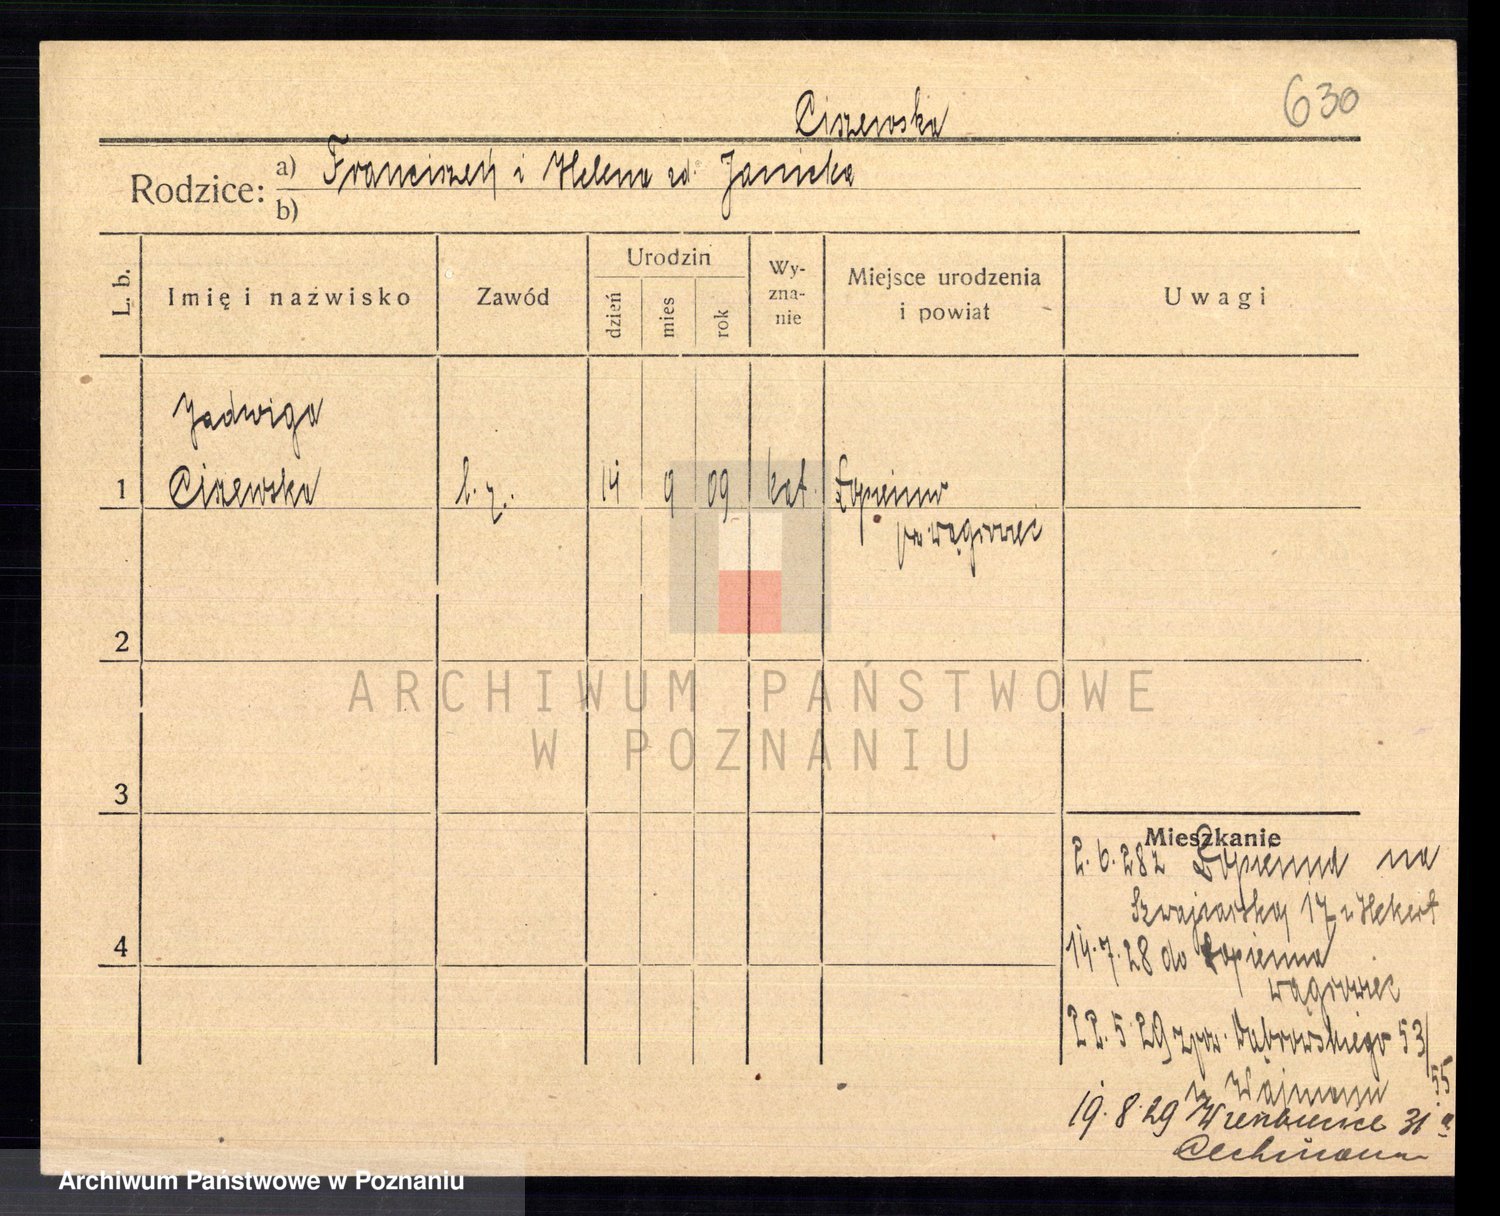 630
Ciszewska
Rodzice: a) Franciszek i Helena zd. Janicka
b)
L. b.
Imię i nazwisko
Zawód
Urodzin
dzień
mies
rok
Wy-
zna-
nie
Miejsce urodzenia
i powiat
Uwagi
Jadwiga
1 Ciszewska b. z. 14 9 09 kat. Łopienno
pow. wągrowiec
2
3
4
ARCHIWUM PAŃSTWOWE
W POZNANIU
Mieszkanie
2.6.28 z Łopienna na
Szwajcarską 17 u Hekert
14.7.28 do Łopienna
wągrowiec
22.5.29 zpow. Dąbrowskiego 53/
55
u Wajmann
19.8.29 31
Archiwum Państwowe w Poznaniu